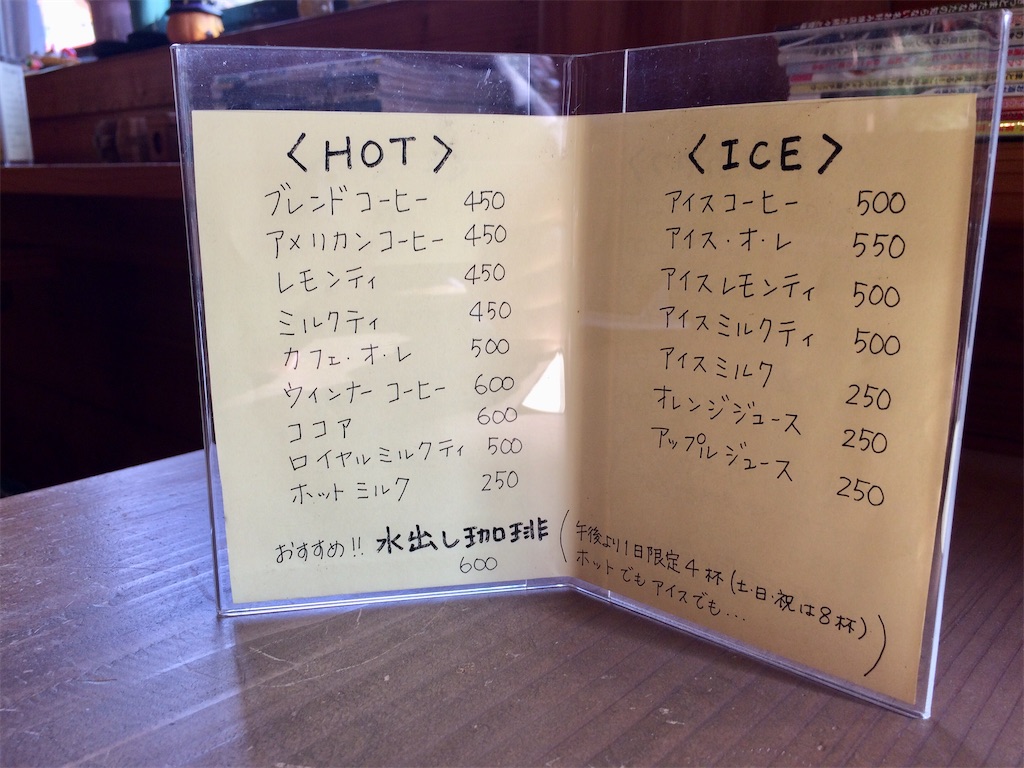 〈HOT〉
ブレンドコーヒー 450
アメリカンコーヒー 450
レモンティ 450
ミルクティ 450
カフェ・オ・レ 500
ウィンナーコーヒー 600
ココア 600
ロイヤルミルクティ 500
ホットミルク 250
おすすめ!! 水出し珈琲
600
〈ICE〉
アイスコーヒー 500
アイス・オ・レ 550
アイスレモンティ 500
アイスミルクティ 500
アイスミルク 250
オレンジジュース 250
アップルジュース 250
(午後より1日限定4杯(土・日・祝は8杯)
ホットでもアイスでも...)